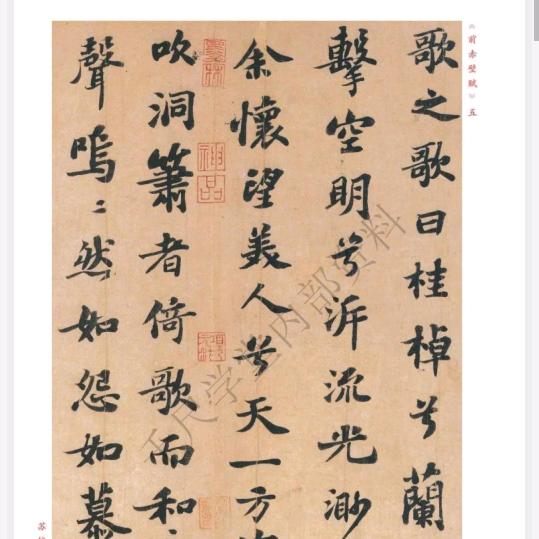 《前赤壁賦》五
歌之歌曰桂棹兮蘭
擊空明兮泝流光渺
余懷望美人兮天一方
吹洞簫者倚歌而和
聲嗚〻然如怨如慕
神品
尺学堂内部资料
苏